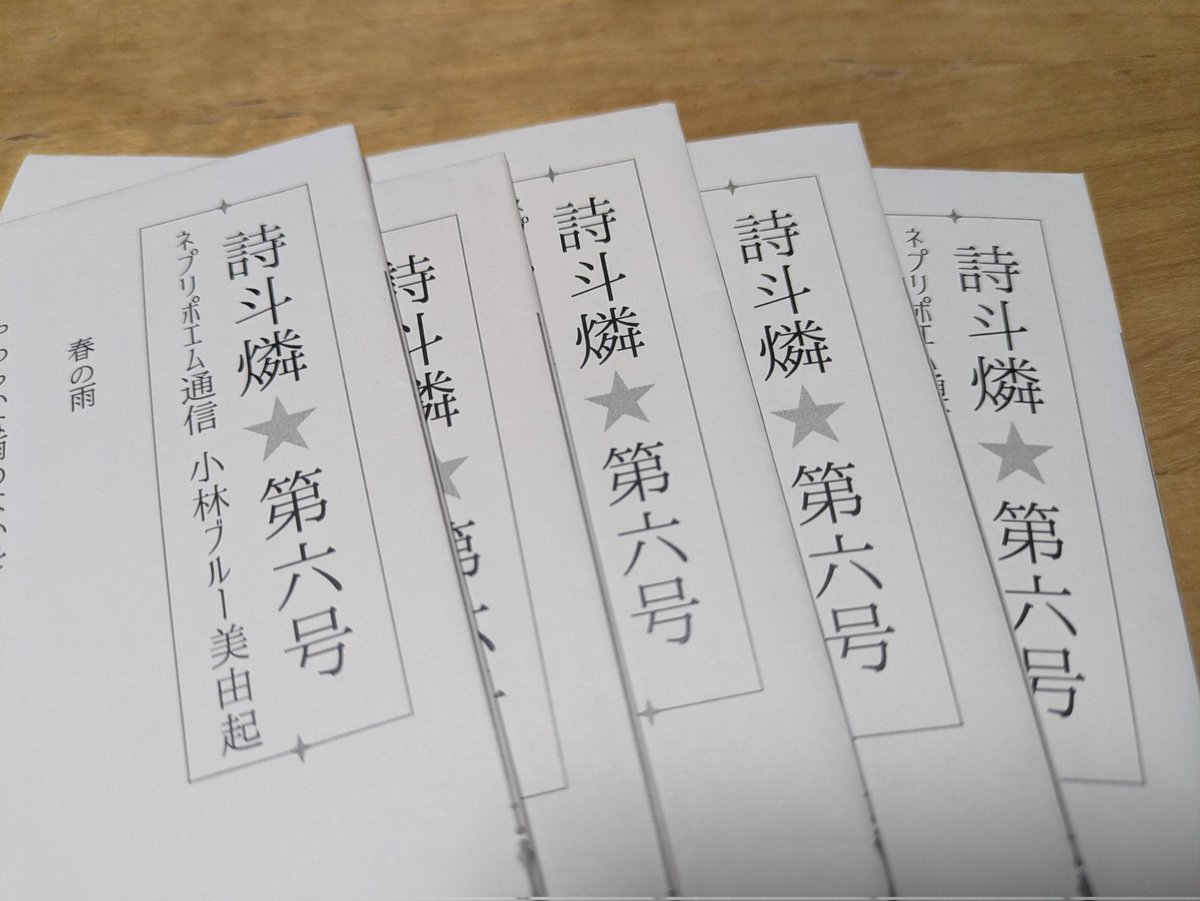 詩斗燐★第六号
ネプリポエム通信 小林ブルー美由起
春の雨
詩斗燐★第六
詩斗燐★第六号
詩斗燐★第六号
詩斗燐★第六号
ネプリポエム通